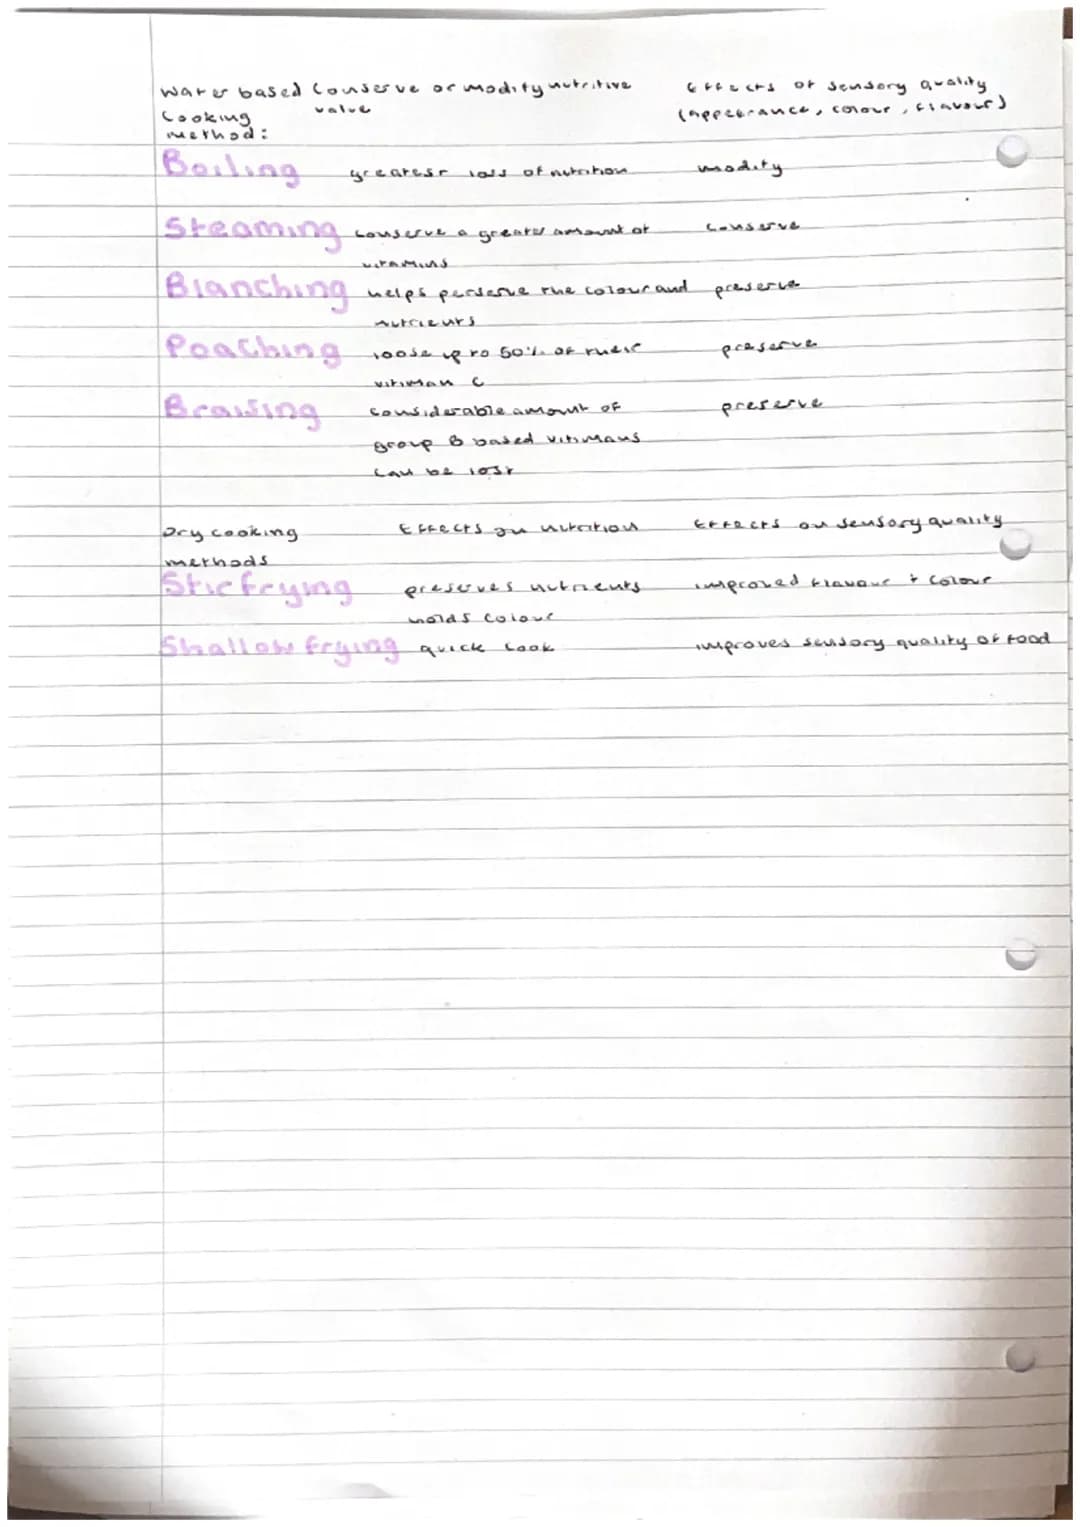 Water based Conserve or modify nutritive Effects of sensory quality
Cooking value (appeerance, colour, flavour)
method:
Boiling greatest loss of nutrition modify
Steaming conserve a greater amount of conserve
vitamins
Blanching helps perserve the colour and preserve
nutrieurs
Poaching loose up to 50% of their preserve
vitiman C
Braising considerable amount of preserve
group B based vitimans
can be lost
Dry cooking Effects on nutrition Effects on sensory quality
methods
Stir frying preserves nutrients improved flavour + colour
holds colour
Shallow frying quick cook improves sensory quality of food